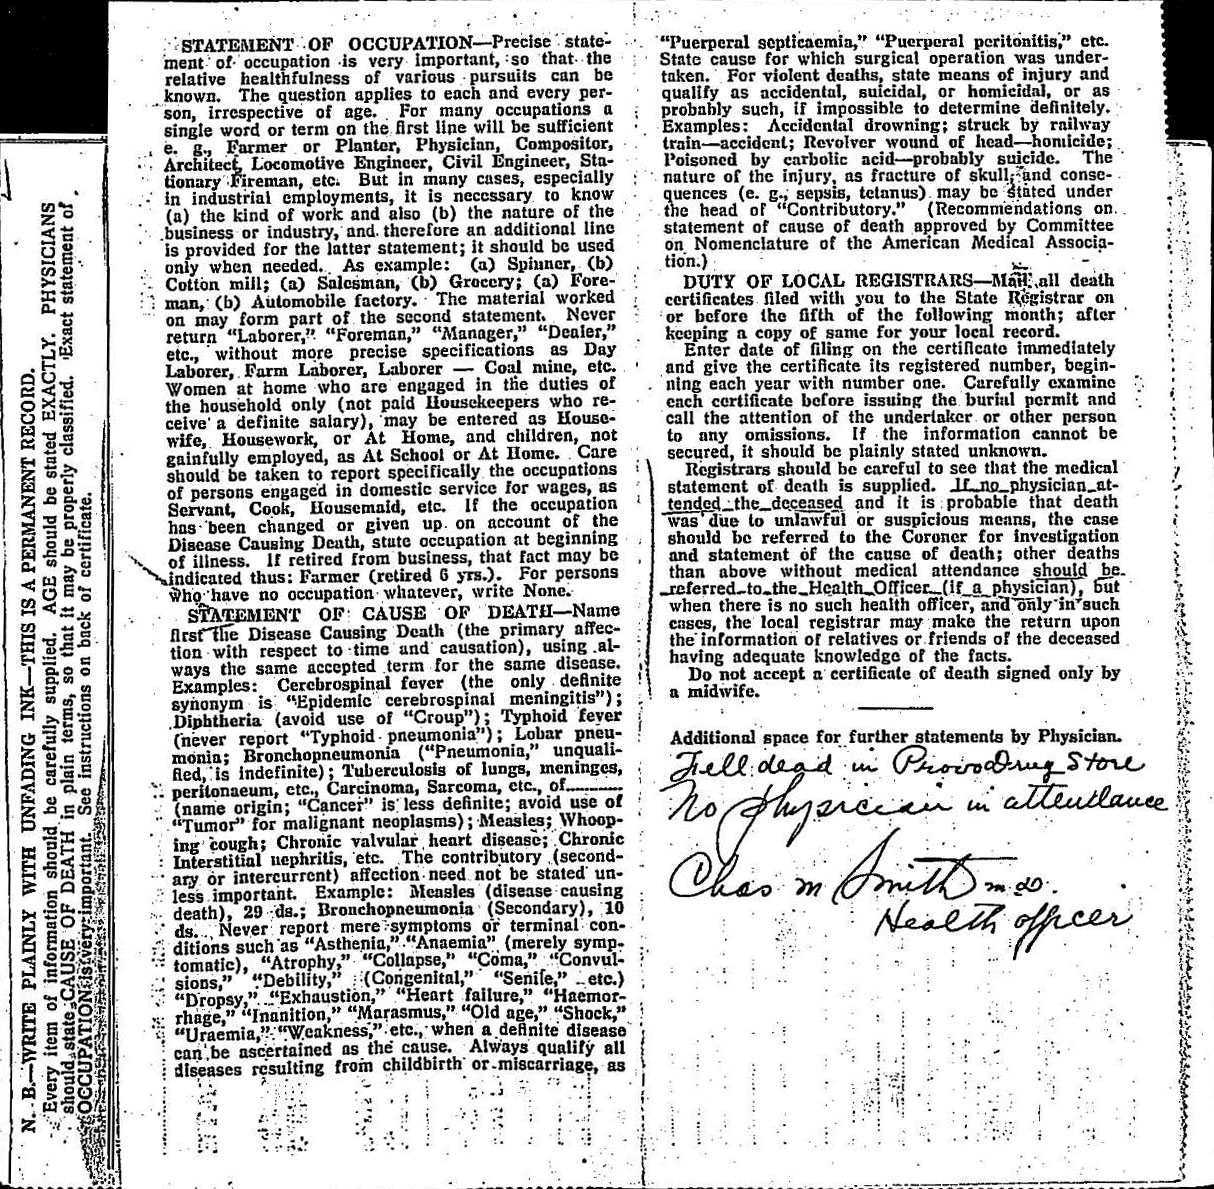 N. B.—WRITE PLAINLY WITH UNFADING INK—THIS IS A PERMANENT RECORD.
Every item of information should be carefully supplied. AGE should be stated EXACTLY. PHYSICIANS
should state CAUSE OF DEATH in plain terms, so that it may be properly classified. Exact statement of
OCCUPATION is very important. See instructions on back of certificate.
STATEMENT OF OCCUPATION—Precise state-
ment of occupation is very important, so that the
relative healthfulness of various pursuits can be
known. The question applies to each and every per-
son, irrespective of age. For many occupations a
single word or term on the first line will be sufficient
e. g., Farmer or Planter, Physician, Compositor,
Architect, Locomotive Engineer, Civil Engineer, Sta-
tionary Fireman, etc. But in many cases, especially
in industrial employments, it is necessary to know
(a) the kind of work and also (b) the nature of the
business or industry, and therefore an additional line
is provided for the latter statement; it should be used
only when needed. As example: (a) Spinner, (b)
Cotton mill; (a) Salesman, (b) Grocery; (a) Fore-
man, (b) Automobile factory. The material worked
on may form part of the second statement. Never
return "Laborer," "Foreman," "Manager," "Dealer,"
etc., without more precise specifications as Day
Laborer, Farm Laborer, Laborer — Coal mine, etc.
Women at home who are engaged in the duties of
the household only (not paid Housekeepers who re-
ceive a definite salary), may be entered as House-
wife, Housework, or At Home, and children, not
gainfully employed, as At School or At Home. Care
should be taken to report specifically the occupations
of persons engaged in domestic service for wages, as
Servant, Cook, Housemaid, etc. If the occupation
has been changed or given up on account of the
Disease Causing Death, state occupation at beginning
of illness. If retired from business, that fact may be
indicated thus: Farmer (retired 6 yrs.). For persons
who have no occupation whatever, write None.
STATEMENT OF CAUSE OF DEATH—Name
first the Disease Causing Death (the primary affec-
tion with respect to time and causation), using al-
ways the same accepted term for the same disease.
Examples: Cerebrospinal fever (the only definite
synonym is "Epidemic cerebrospinal meningitis");
Diphtheria (avoid use of "Croup"); Typhoid fever
(never report "Typhoid pneumonia"); Lobar pneu-
monia; Bronchopneumonia ("Pneumonia," unquali-
fied, is indefinite); Tuberculosis of lungs, meninges,
peritonaeum, etc., Carcinoma, Sarcoma, etc., of...........
(name origin; "Cancer" is less definite; avoid use of
"Tumor" for malignant neoplasms); Measles; Whoop-
ing cough; Chronic valvular heart disease; Chronic
Interstitial nephritis, etc. The contributory (second-
ary or intercurrent) affection need not be stated un-
less important. Example: Measles (disease causing
death), 29 ds.; Bronchopneumonia (Secondary), 10
ds. Never report mere symptoms or terminal con-
ditions such as "Asthenia," "Anaemia" (merely symp-
tomatic), "Atrophy," "Collapse," "Coma," "Convul-
sions," "Debility," (Congenital," "Senile," etc.)
"Dropsy," "Exhaustion," "Heart failure," "Haemor-
rhage," "Inanition," "Marasmus," "Old age," "Shock,"
"Uraemia," "Weakness," etc., when a definite disease
can be ascertained as the cause. Always qualify all
diseases resulting from childbirth or miscarriage, as
"Puerperal septicaemia," "Puerperal peritonitis," etc.
State cause for which surgical operation was under-
taken. For violent deaths, state means of injury and
qualify as accidental, suicidal, or homicidal, or as
probably such, if impossible to determine definitely.
Examples: Accidental drowning; struck by railway
train—accident; Revolver wound of head—homicide;
Poisoned by carbolic acid—probably suicide. The
nature of the injury, as fracture of skull, and conse-
quences (e. g., sepsis, tetanus) may be stated under
the head of "Contributory." (Recommendations on
statement of cause of death approved by Committee
on Nomenclature of the American Medical Associa-
tion.)
DUTY OF LOCAL REGISTRARS—Mail all death
certificates filed with you to the State Registrar on
or before the fifth of the following month; after
keeping a copy of same for your local record.
Enter date of filing on the certificate immediately
and give the certificate its registered number, begin-
ning each year with number one. Carefully examine
each certificate before issuing the burial permit and
call the attention of the undertaker or other person
to any omissions. If the information cannot be
secured, it should be plainly stated unknown.
Registrars should be careful to see that the medical
statement of death is supplied. If no physician at-
tended the deceased and it is probable that death
was due to unlawful or suspicious means, the case
should be referred to the Coroner for investigation
and statement of the cause of death; other deaths
than above without medical attendance should be
referred to the Health Officer (if a physician), but
when there is no such health officer, and only in such
cases, the local registrar may make the return upon
the information of relatives or friends of the deceased
having adequate knowledge of the facts.
Do not accept a certificate of death signed only by
a midwife.
Additional space for further statements by Physician.
Fell dead in Provo Drug Store
No physician in attendance
Chas M Smith M.D.
Health officer